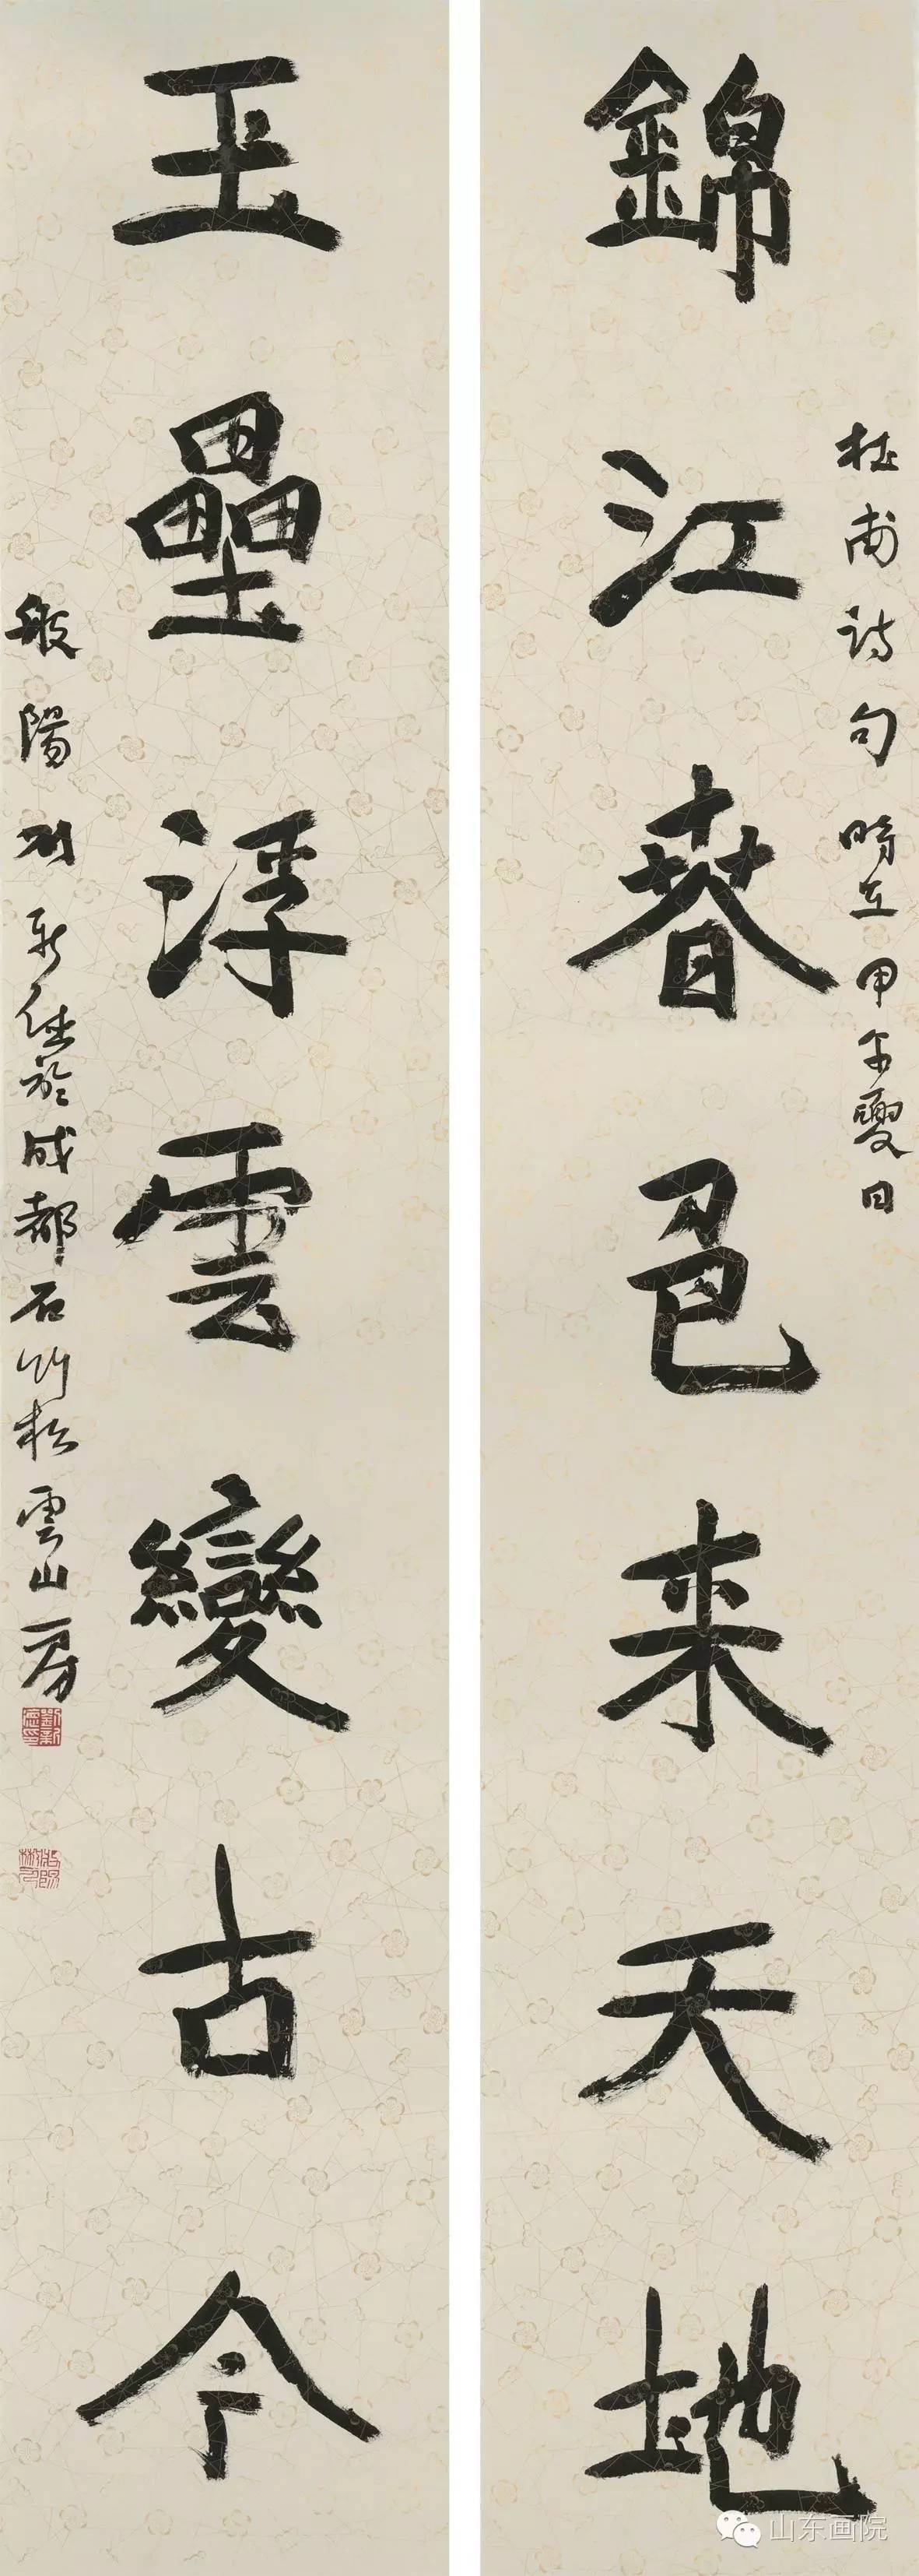 杜甫诗句時在甲午夏日
錦江春色来天地
玉壘浮雲變古今
般陽刘新德於成都石竹松雲山房
劉新德印
山东画院